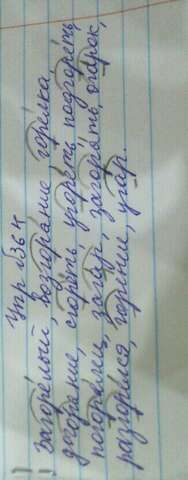 Упр 136 к
загорелый, возгорание, горелка
догорание, сгореть, угореть, подгореть,
погорели, загар, загорать, огарок,
разгорелся, горении, угар.